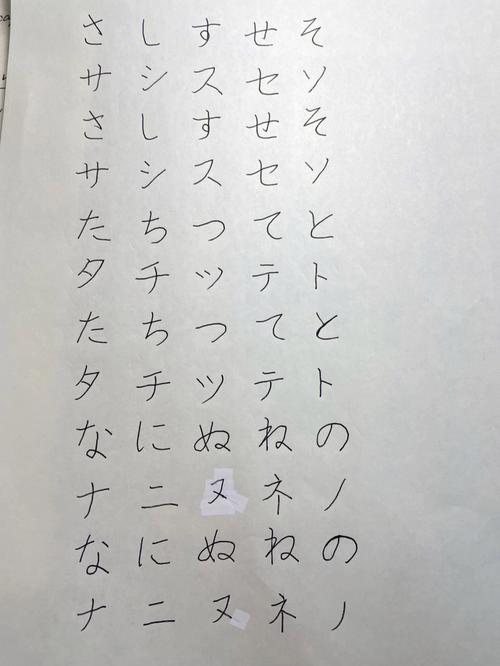 さしすせそ
サシスセソ
さしすせそ
サシスセソ
たちつてと
タチツテト
たちつてと
タチツテト
なにぬねの
ナニヌネノ
なにぬねの
ナニヌネノ